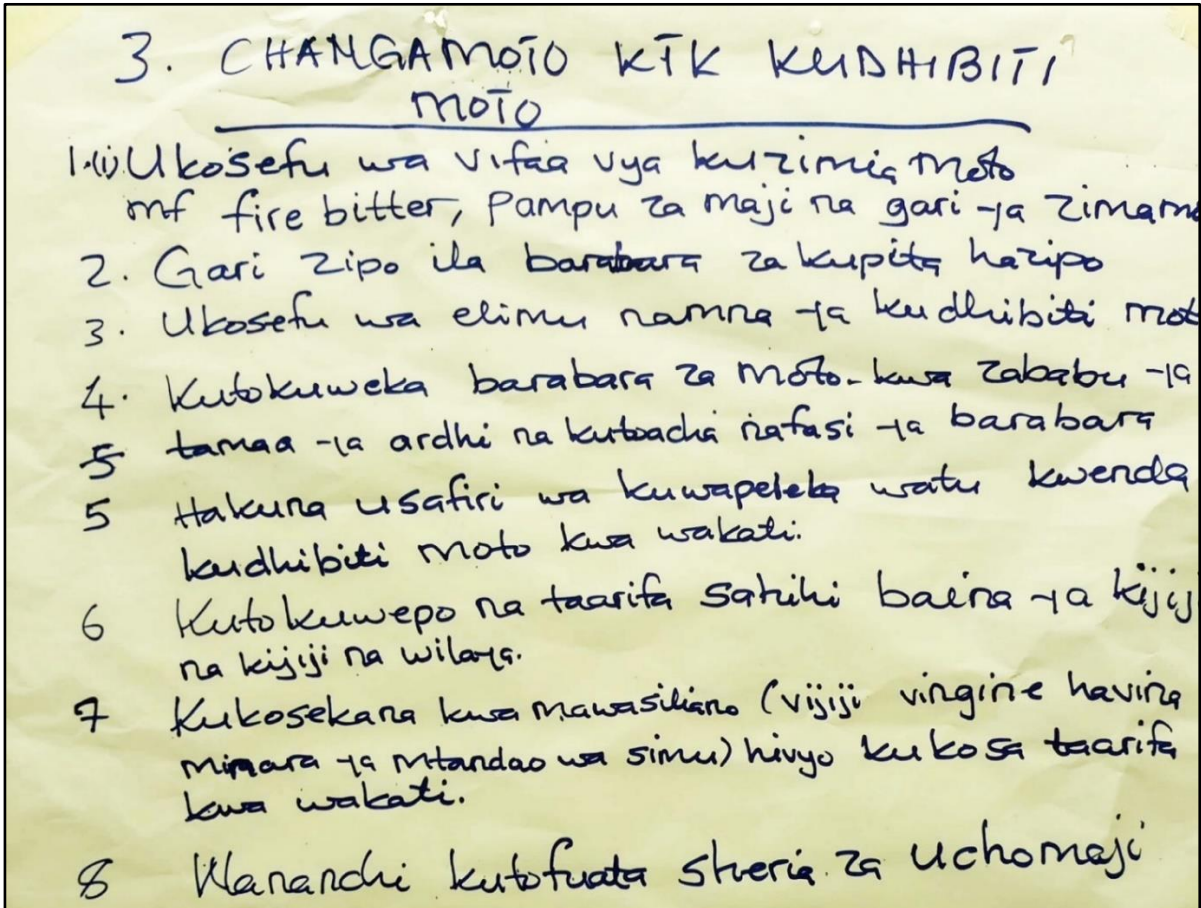 3. CHANGAMOTO KTK KUDHIBITI
MOTO
1.(i) Ukosefu wa vifaa vya kuzimia moto
mf fire bitter, Pampu za maji na gari ya Zimamo
2. Gari Zipo ila barabara za kupita hazipo
3. Ukosefu wa elimu namna ya kudhibiti mot
4. Kutokuweka barabara za moto kwa zababu ya
5 tamaa ya ardhi na kutoacha nafasi ya barabara
5 Hakuna usafiri wa kuwapeleka watu kwenda
kudhibiti moto kwa wakati.
6 Kutokuwepo na taarifa sahihi baina ya kijij
na kijiji na wilaya.
7 Kukosekana kwa mawasiliano (vijiji vingine havina
minara ya mtandao wa simu) hivyo kukosa taarifa
kwa wakati.
8 Wananchi kutofuata sheria za Uchomaji